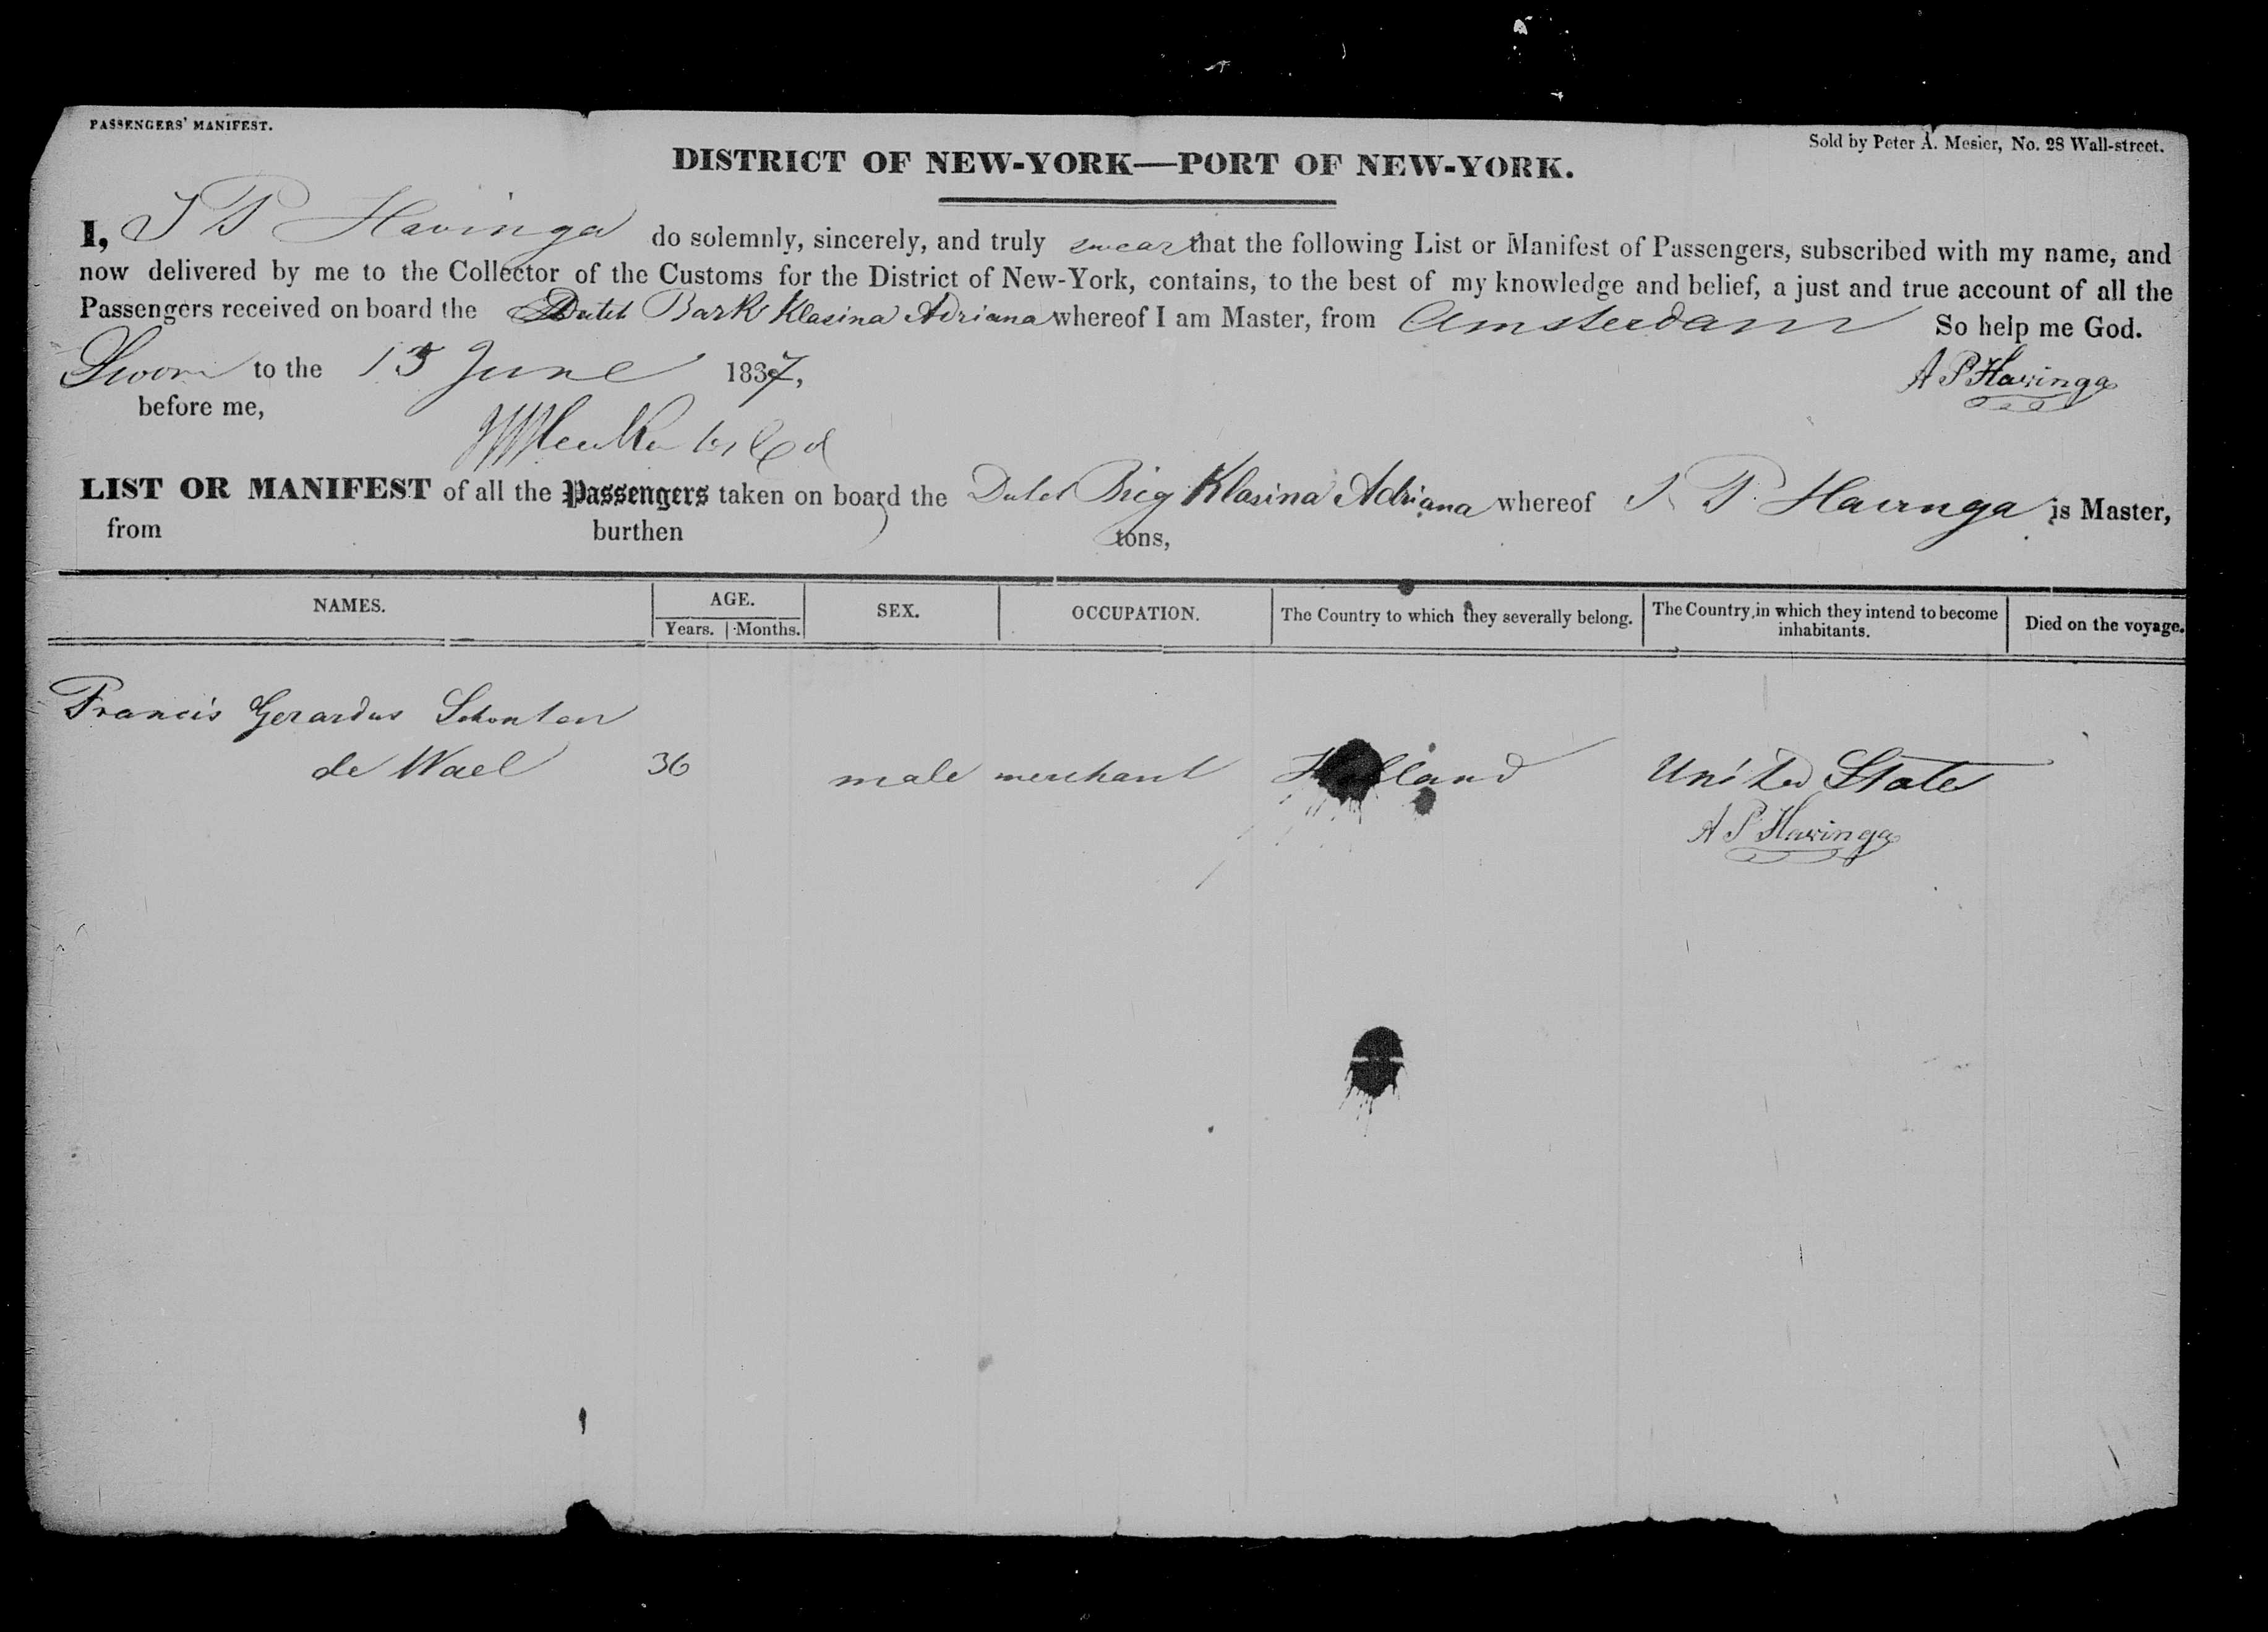 PASSENGERS' MANIFEST.
Sold by Peter A. Mesier, No. 28 Wall-street.
DISTRICT OF NEW-YORK—PORT OF NEW-YORK.
I, J P Havinga do solemnly, sincerely, and truly swear that the following List or Manifest of Passengers, subscribed with my name, and
now delivered by me to the Collector of the Customs for the District of New-York, contains, to the best of my knowledge and belief, a just and true account of all the
Passengers received on board the Dutch Bark Klasina Adriana whereof I am Master, from Amsterdam So help me God.
Sworn to the 15 June 1837,
A P Havinga
before me,
LIST OR MANIFEST of all the Passengers taken on board the Dutch Brig Klasina Adriana whereof J. P. Havinga is Master,
from burthen tons,
NAMES. AGE. Years. Months. SEX. OCCUPATION. The Country to which they severally belong. The Country in which they intend to become inhabitants. Died on the voyage.
Francis Gerardus Schouten
de Wael 36 male merchant Holland United States
A P Havinga